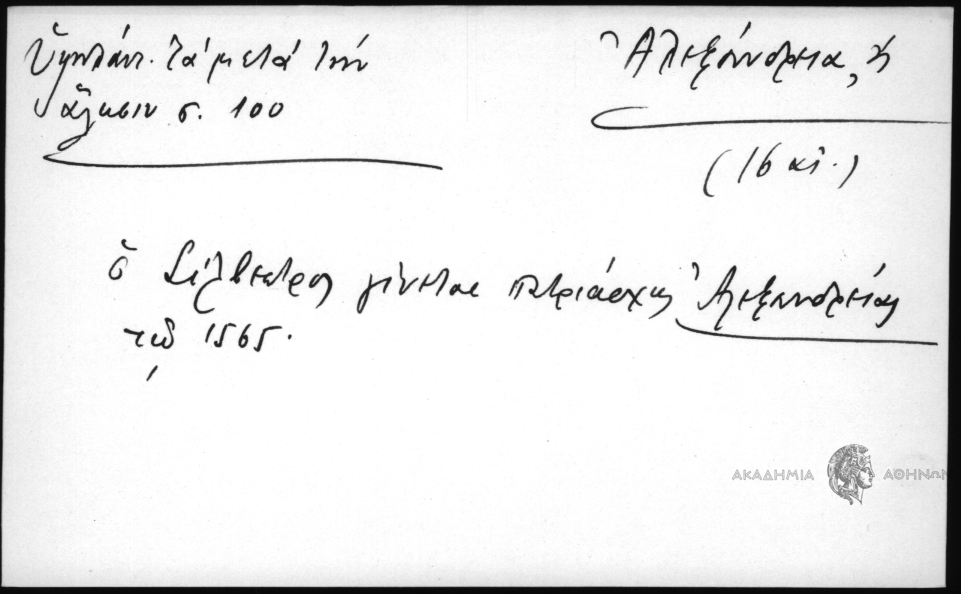 Ὑψηλάντ. Τά μετά τήν
ἅλωσιν σ. 100
Ἀλεξάνδρεια, ἡ
(16 αἰ.)
ὁ Σίλβεστρος γίνεται πατριάρχης Ἀλεξανδρείας
τῷ 1565.
ΑΚΑΔΗΜΙΑ ΑΘΗΝΩΝ